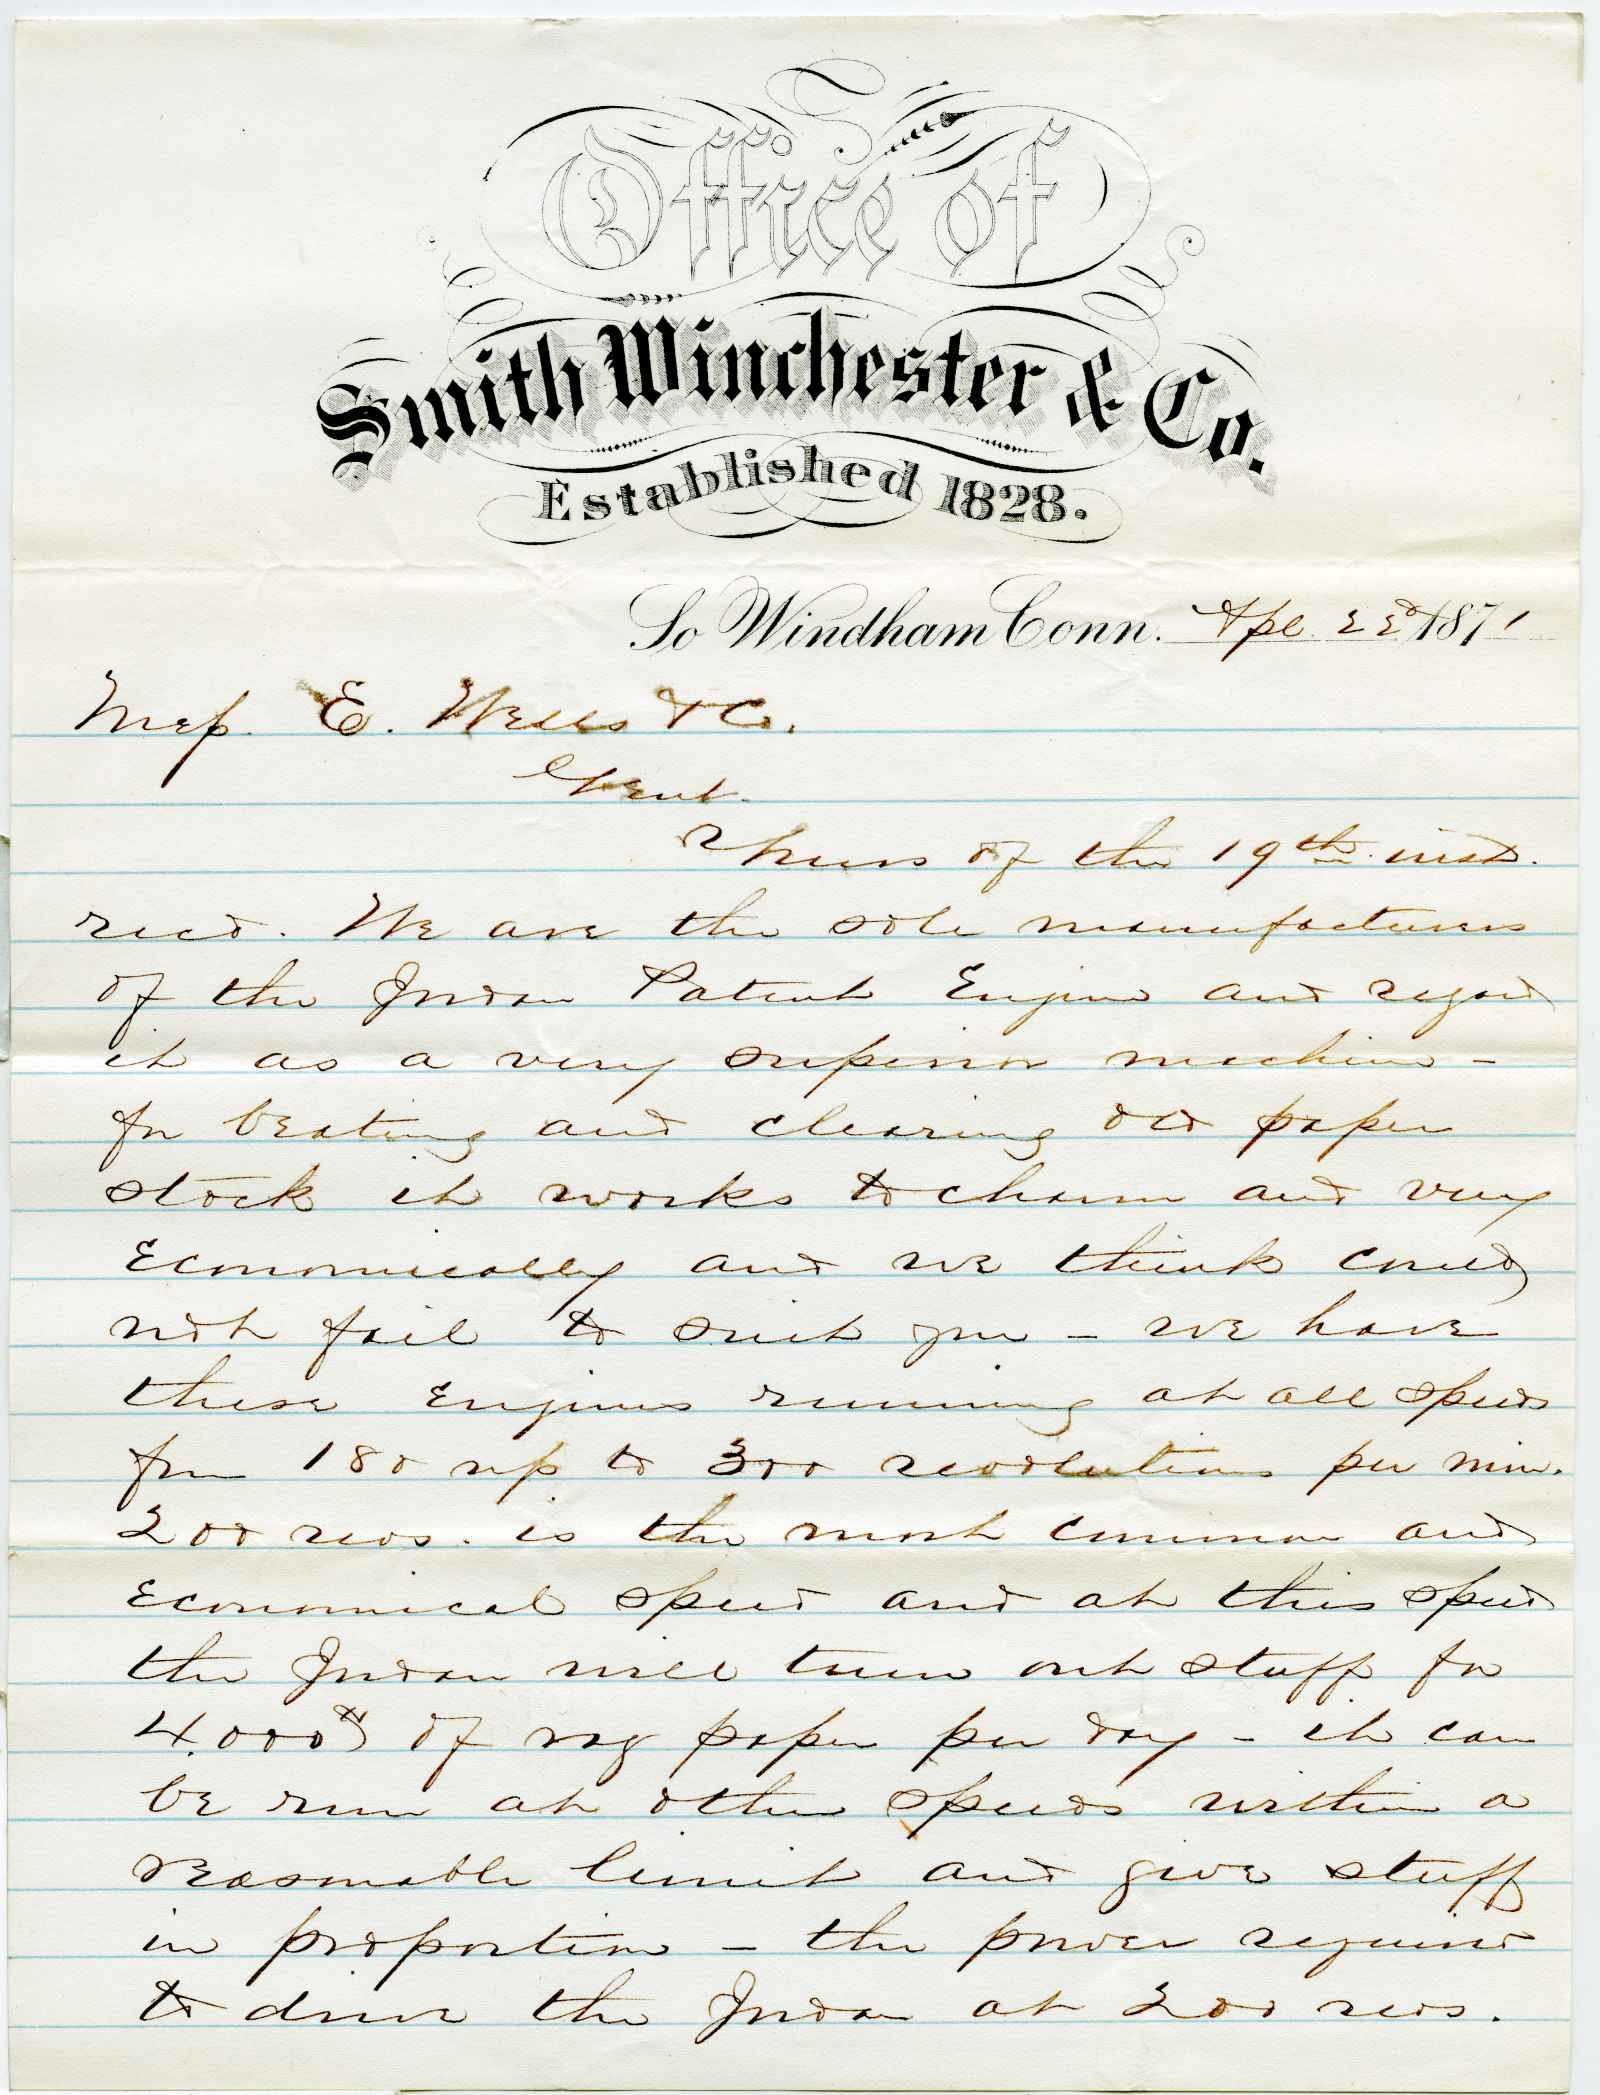 Office of
Smith Winchester & Co.
Established 1828.
So Windham Conn. Apl 22d 1871
Mess. E. Wells & Co.
Gent.
Yours of the 19th inst.
recd. We are the sole manufacturers
of the Jordan Patent Engine and regard
it as a very superior machine -
for beating and clearing old paper
stock it works to charm and very
Economically and we think could
not fail to suit you - we have
these Engines running at all speeds
from 180 up to 300 revolutions per min.
200 revs. is the most common and
Economical speed and at this speed
the Jordan will turn out stuff for
4.000# of rag paper per day - it can
be run at other speeds within a
reasonable limit and give stuff
in proportion - the power required
to drive the Jordan at 200 revs.